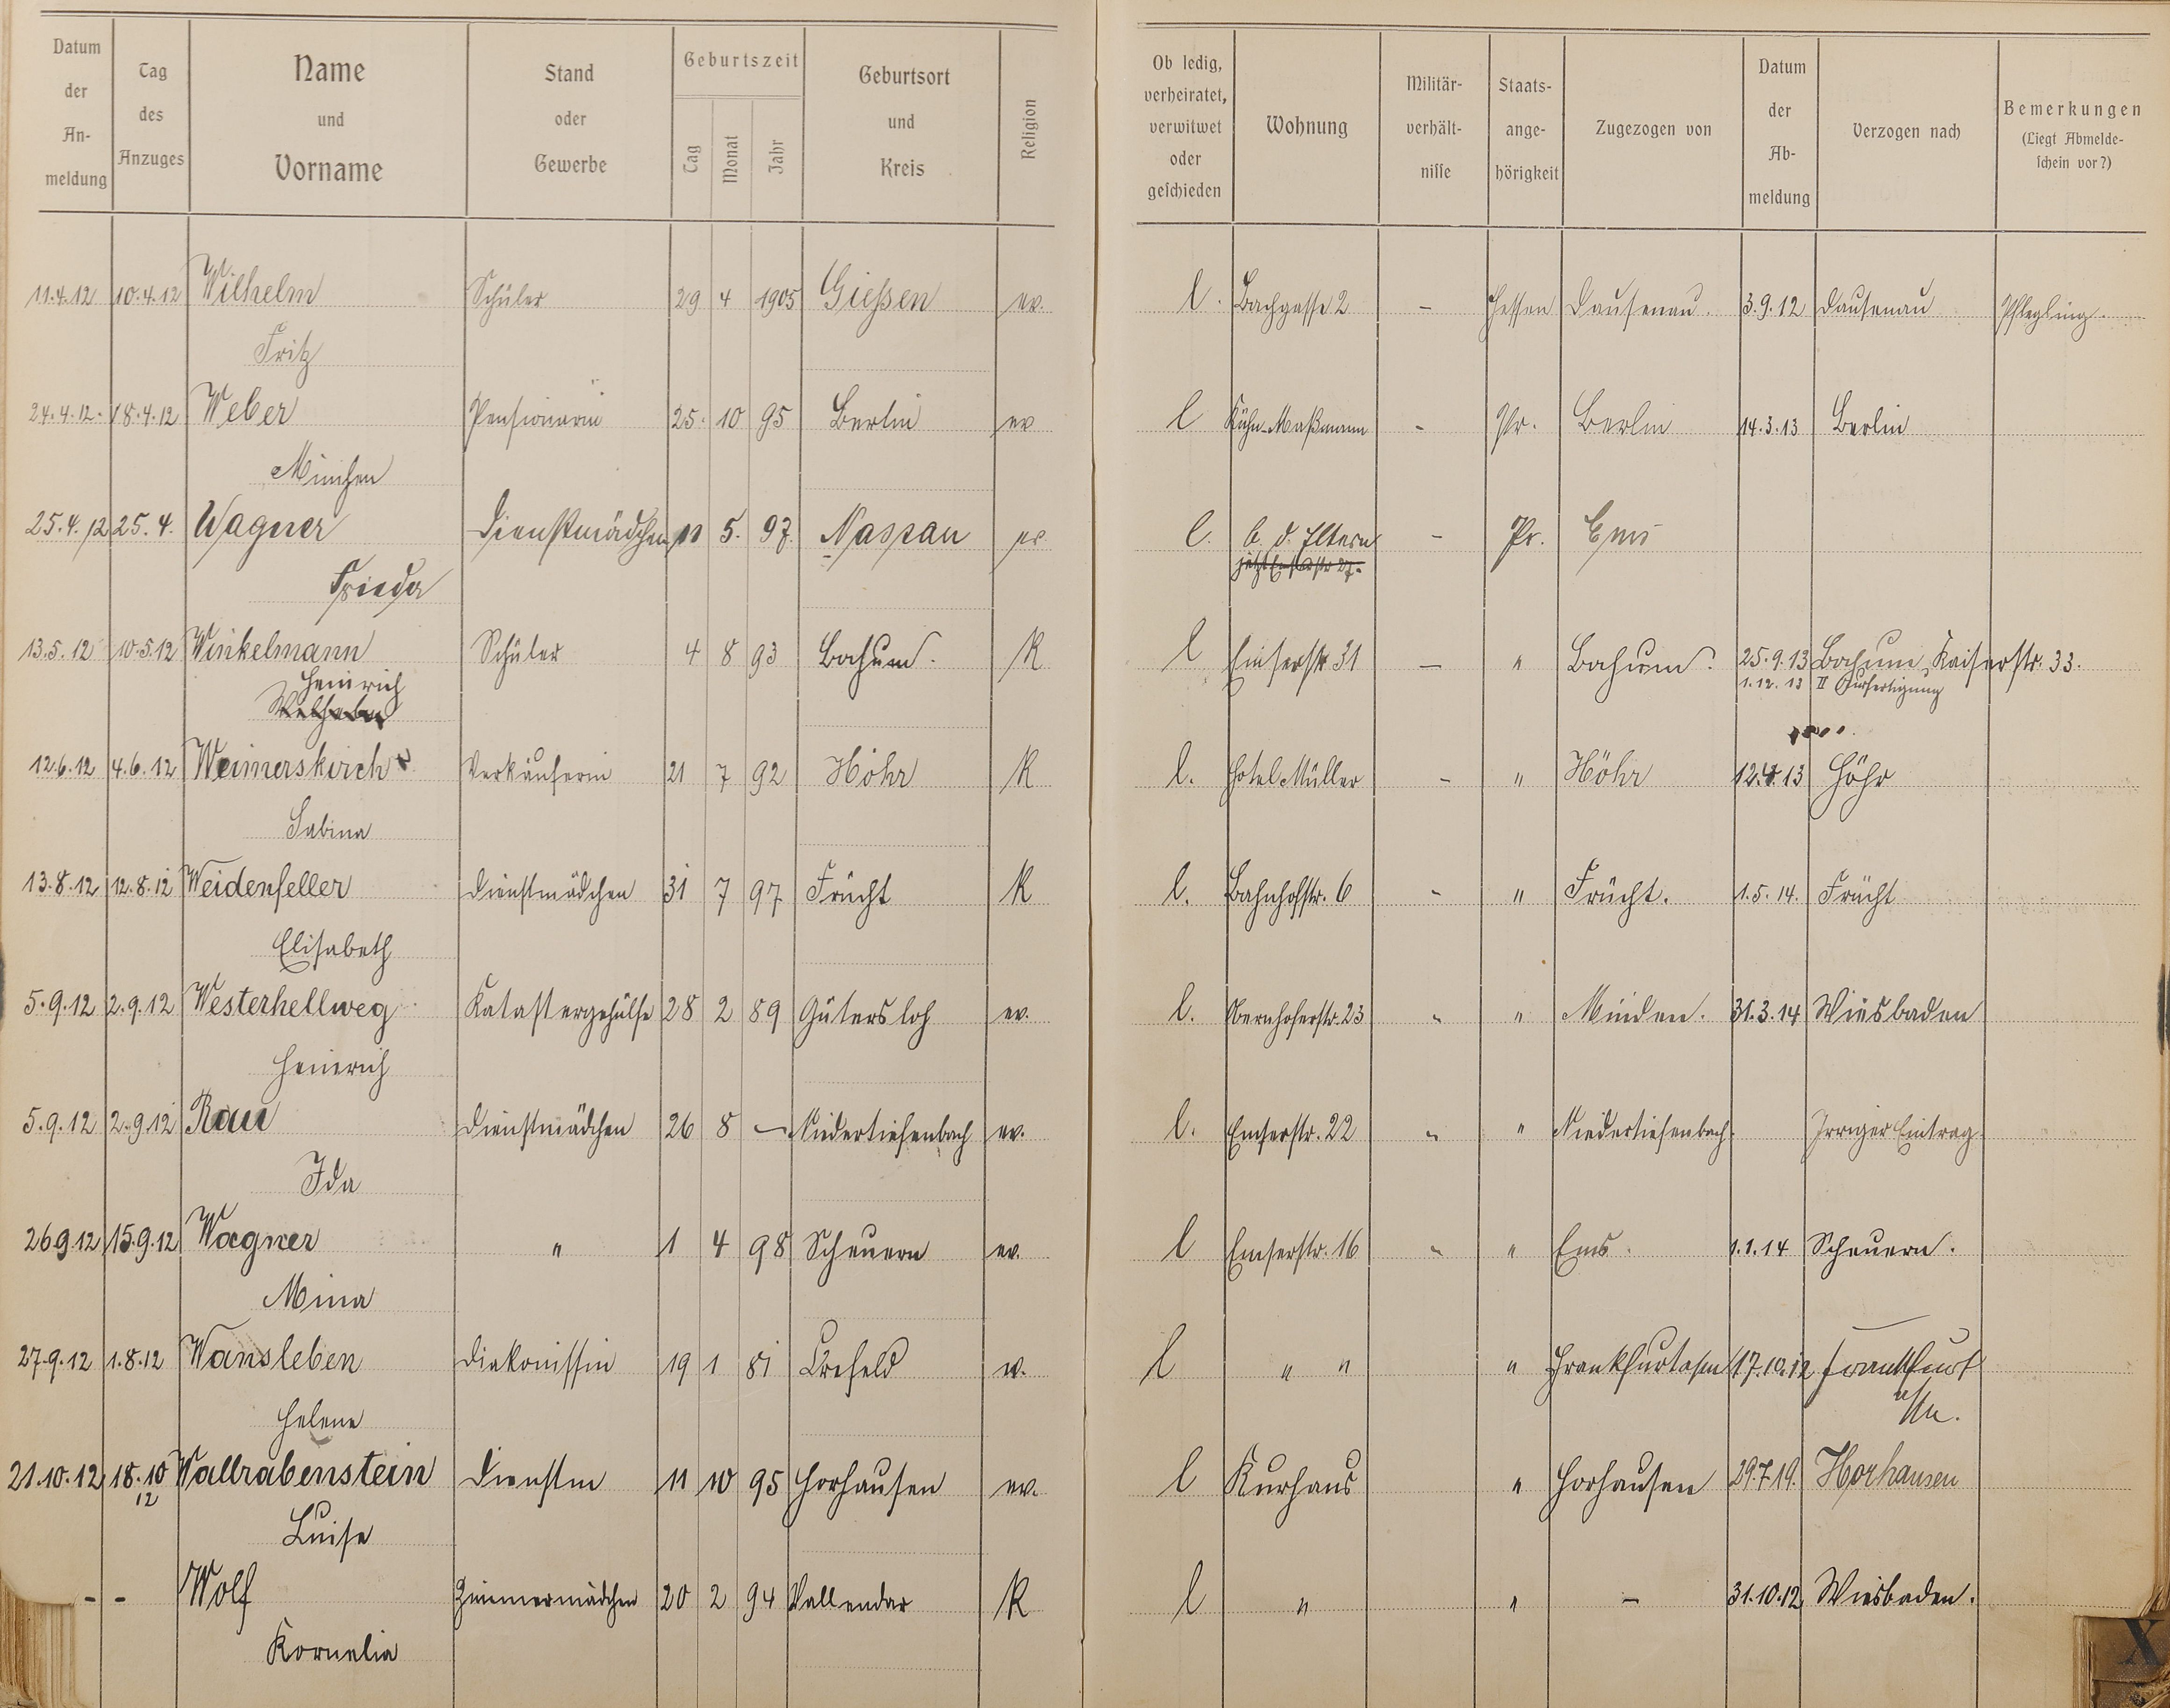 Datum der An-meldung | Tag des Anzuges | Name und Vorname | Stand oder Gewerbe | Geburtszeit Tag Monat Jahr | Geburtsort und Kreis | Religion | Ob ledig, verheiratet, verwitwet oder geschieden | Wohnung | Militär-verhält-nisse | Staats-ange-hörigkeit | Zugezogen von | Datum der Ab-meldung | Verzogen nach | Bemerkungen (Liegt Abmelde-schein vor?)
11.4.12 10.4.12 Wilhelm Schüler 29 4 1905 Gießen ev. l. Bachgasse 2 - Hessen Dausenau. 3.9.12 Dausenau Pflegling.
Fritz
24.4.12. 18.4.12 Weber Pensionärin 25. 10 95 Berlin ev l Kühn-Maßmann - Pr. Berlin 14.3.13 Berlin
Minchen
25.4.12 25.4. Wagner Dienstmädchen 11 5. 97. Nassau ev. l. b. d. Eltern - Pr. Ems
jetzt Emserstr 27.
Frieda
13.5.12 10.5.12 Winkelmann Schüler 4 8 93 Bochum. K l Emserstr 31 — " Bochum. 25.9.13 Bochum, Kaiserstr. 33.
Heinrich 1.12.13 II Ausfertigung
Wilhelm
12.6.12 4.6.12 Weimerskirch Verkäuferin 21 7 92 Höhr K l. Hotel Müller - " Höhr 12.4.13 Höhr
Sabina
13.8.12 12.8.12 Weidenfeller Dienstmädchen 31 7 97 Frücht K l. Bahnhofstr. 6 - " Frücht. 1.5.14. Frücht
Elisabeth
5.9.12 2.9.12 Westerhellweg Katastergehülfe 28 2 89 Gütersloh ev. l. Obernhoferstr. 23 " " Minden. 31.3.14 Wiesbaden
Heinrich
5.9.12 2.9.12 Rau Dienstmädchen 26 8 — Niedertiefenbach ev. l. Emserstr. 22 " " Niedertiefenbach. Irriger Eintrag.
Ida
26.9.12 15.9.12 Wagner " 1 4 98 Scheuern ev. l Emserstr. 16 " " Ems. 1.1.14 Scheuern.
Mina
27.9.12 1.8.12 Wansleben Diakonissin 19 1 81 Crefeld ev. l " " " Frankfurt a/m 17.10.12 Frankfurt
Helene a/M.
21.10.12 18.10 Wallrabenstein Dienstm 11 10 95 Horhausen ev. l Kurhaus " Horhausen 29.7.19. Horhausen
12
Luise
- - Wolf Zimmermädchen 20 2 94 Vallendar K l " " — 31.10.12 Wiesbaden.
Kornelia
X